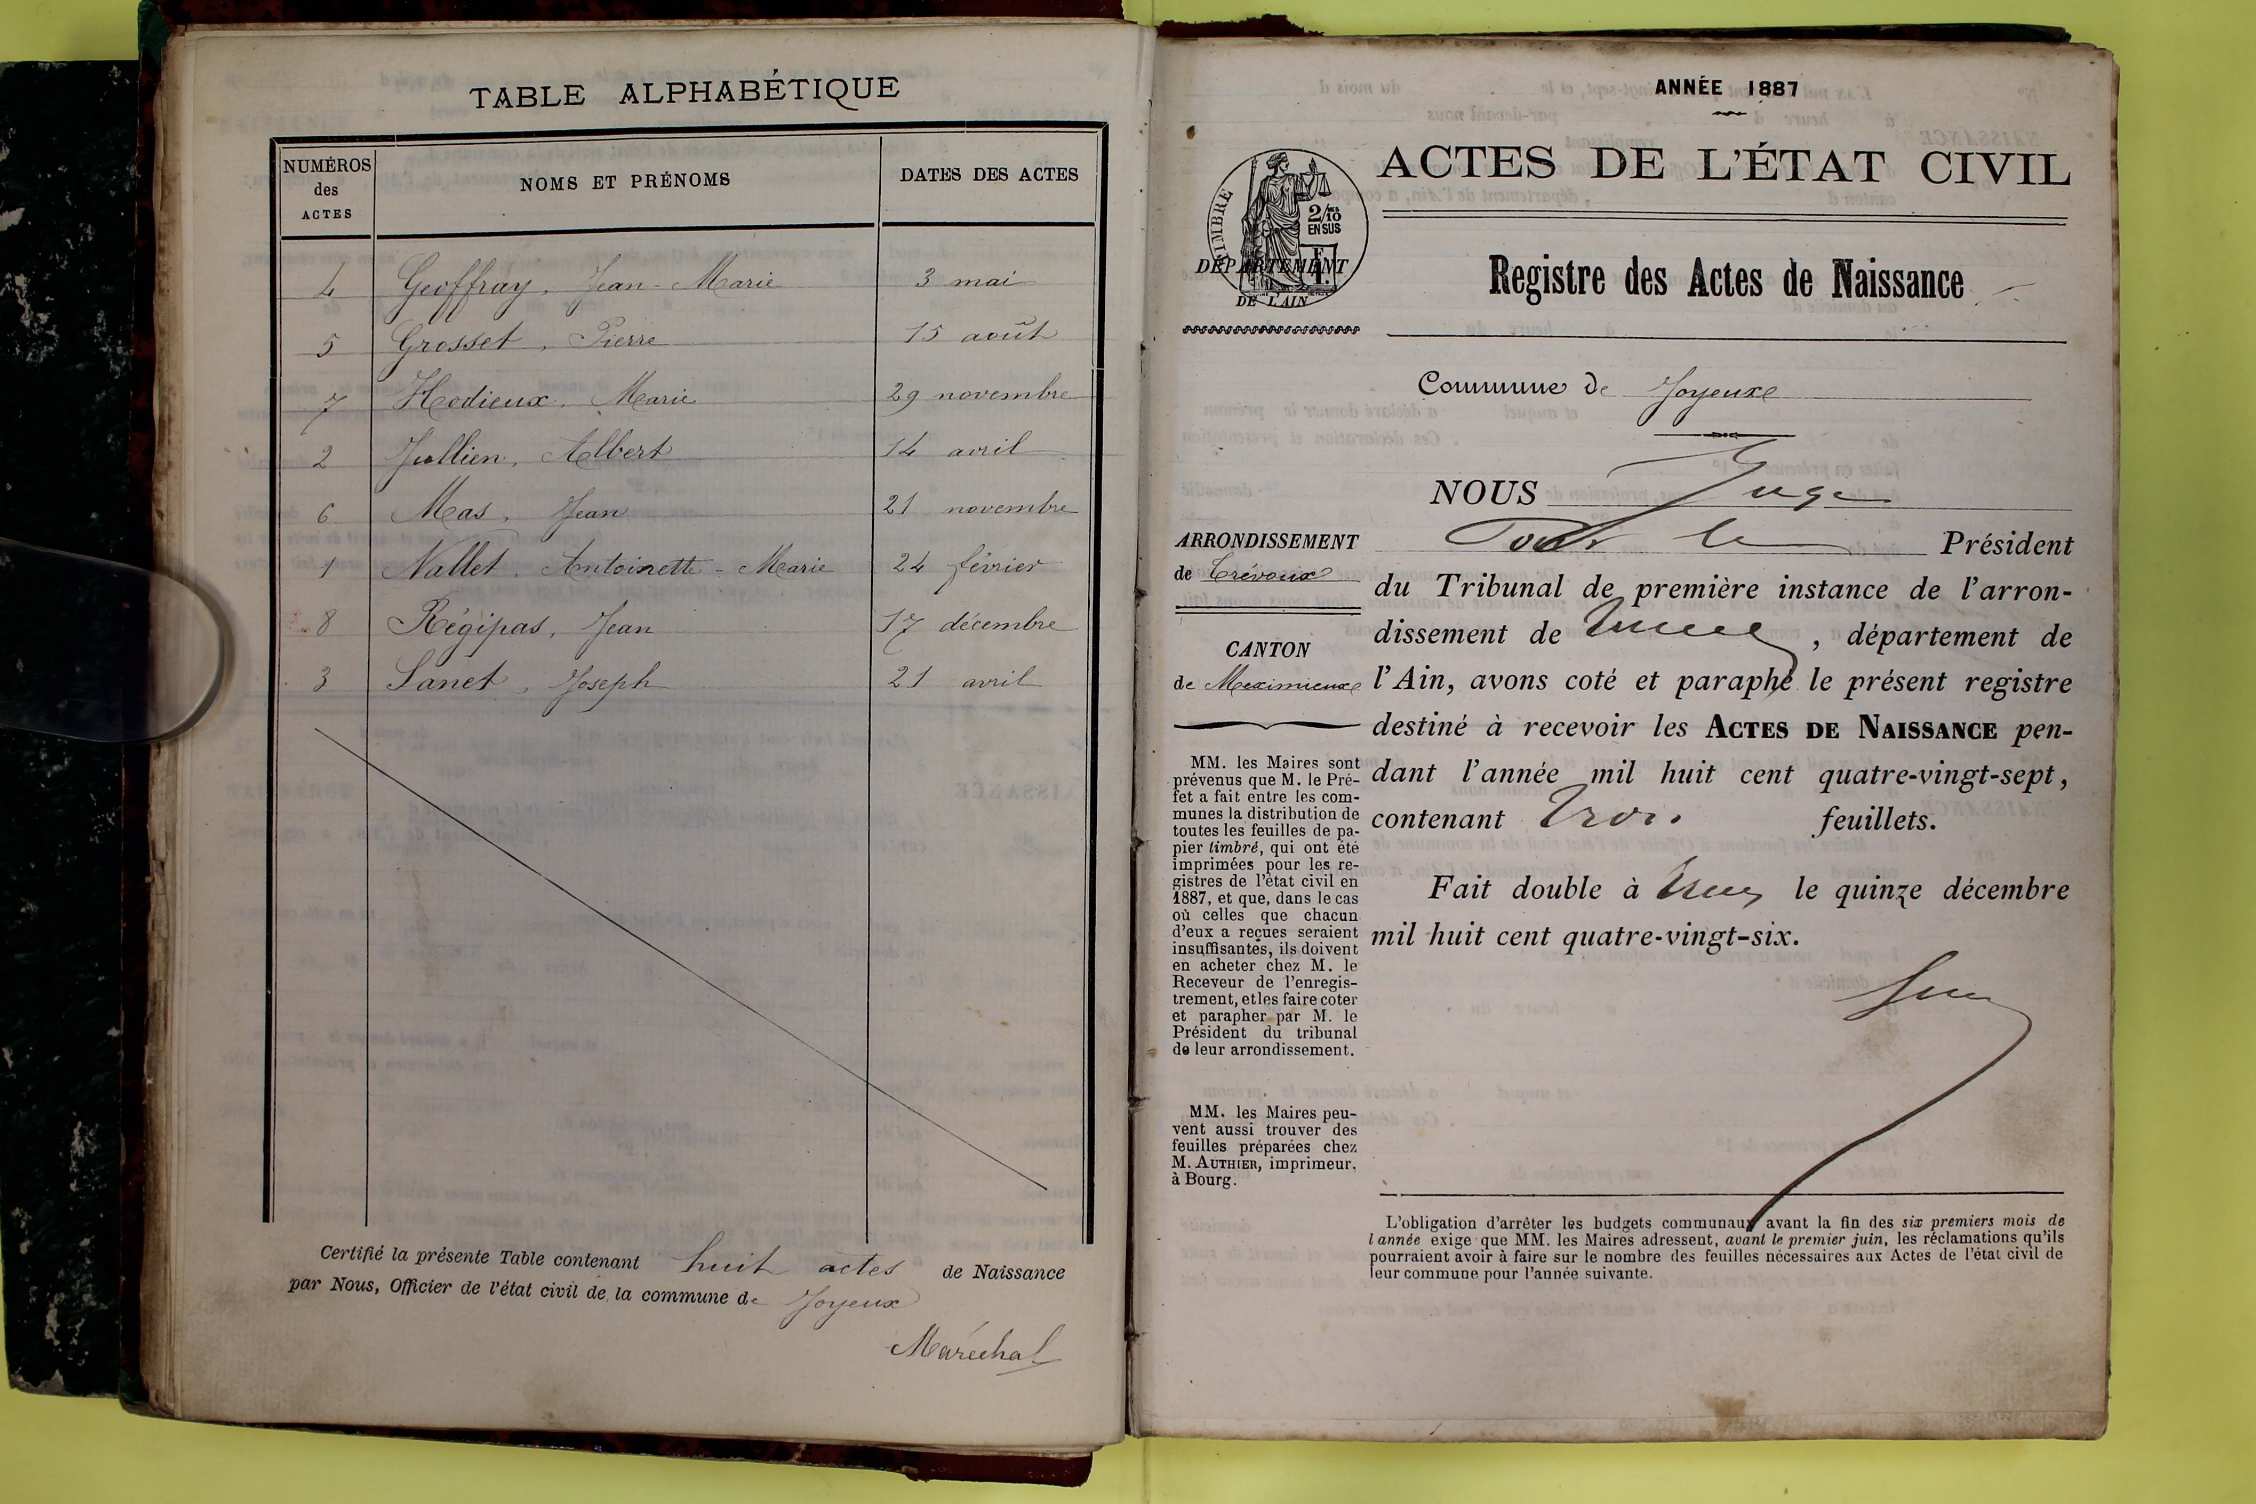 TABLE ALPHABÉTIQUE
NUMÉROS
des
ACTES
NOMS ET PRÉNOMS
DATES DES ACTES
4 Geoffray, Jean-Marie 3 mai
5 Grosset, Pierre 15 août
7 Hodieux, Marie 29 novembre
2 Jullien, Albert 14 avril
6 Mas, Jean 21 novembre
1 Nallet, Antoinette-Marie 24 février
8 Régipas, Jean 17 décembre
3 Sanet, Joseph 21 avril
Certifié la présente Table contenant huit actes de Naissance
par Nous, Officier de l'état civil de la commune de Joyeux
Maréchal
ANNÉE 1887
ACTES DE L'ÉTAT CIVIL
TIMBRE
2/10
EN SUS
DÉPARTEMENT
DE L'AIN
Registre des Actes de Naissance
Commune de Joyeuxe
ARRONDISSEMENT
de Trévoux
CANTON
de Meximieux
MM. les Maires sont
prévenus que M. le Pré-
fet a fait entre les com-
munes la distribution de
toutes les feuilles de pa-
pier timbré, qui ont été
imprimées pour les re-
gistres de l'état civil en
1887, et que, dans le cas
où celles que chacun
d'eux a reçues seraient
insuffisantes, ils doivent
en acheter chez M. le
Receveur de l'enregis-
trement, et les faire coter
et parapher par M. le
Président du tribunal
de leur arrondissement.
MM. les Maires peu-
vent aussi trouver des
feuilles préparées chez
M. AUTHIER, imprimeur,
à Bourg.
NOUS Juge
Pour le Président
du Tribunal de première instance de l'arron-
dissement de , département de
l'Ain, avons coté et paraphé le présent registre
destiné à recevoir les ACTES DE NAISSANCE pen-
dant l'année mil huit cent quatre-vingt-sept,
contenant trois feuillets.
Fait double à le quinze décembre
mil huit cent quatre-vingt-six.
L'obligation d'arrêter les budgets communaux avant la fin des six premiers mois de
l'année exige que MM. les Maires adressent, avant le premier juin, les réclamations qu'ils
pourraient avoir à faire sur le nombre des feuilles nécessaires aux Actes de l'état civil de
leur commune pour l'année suivante.